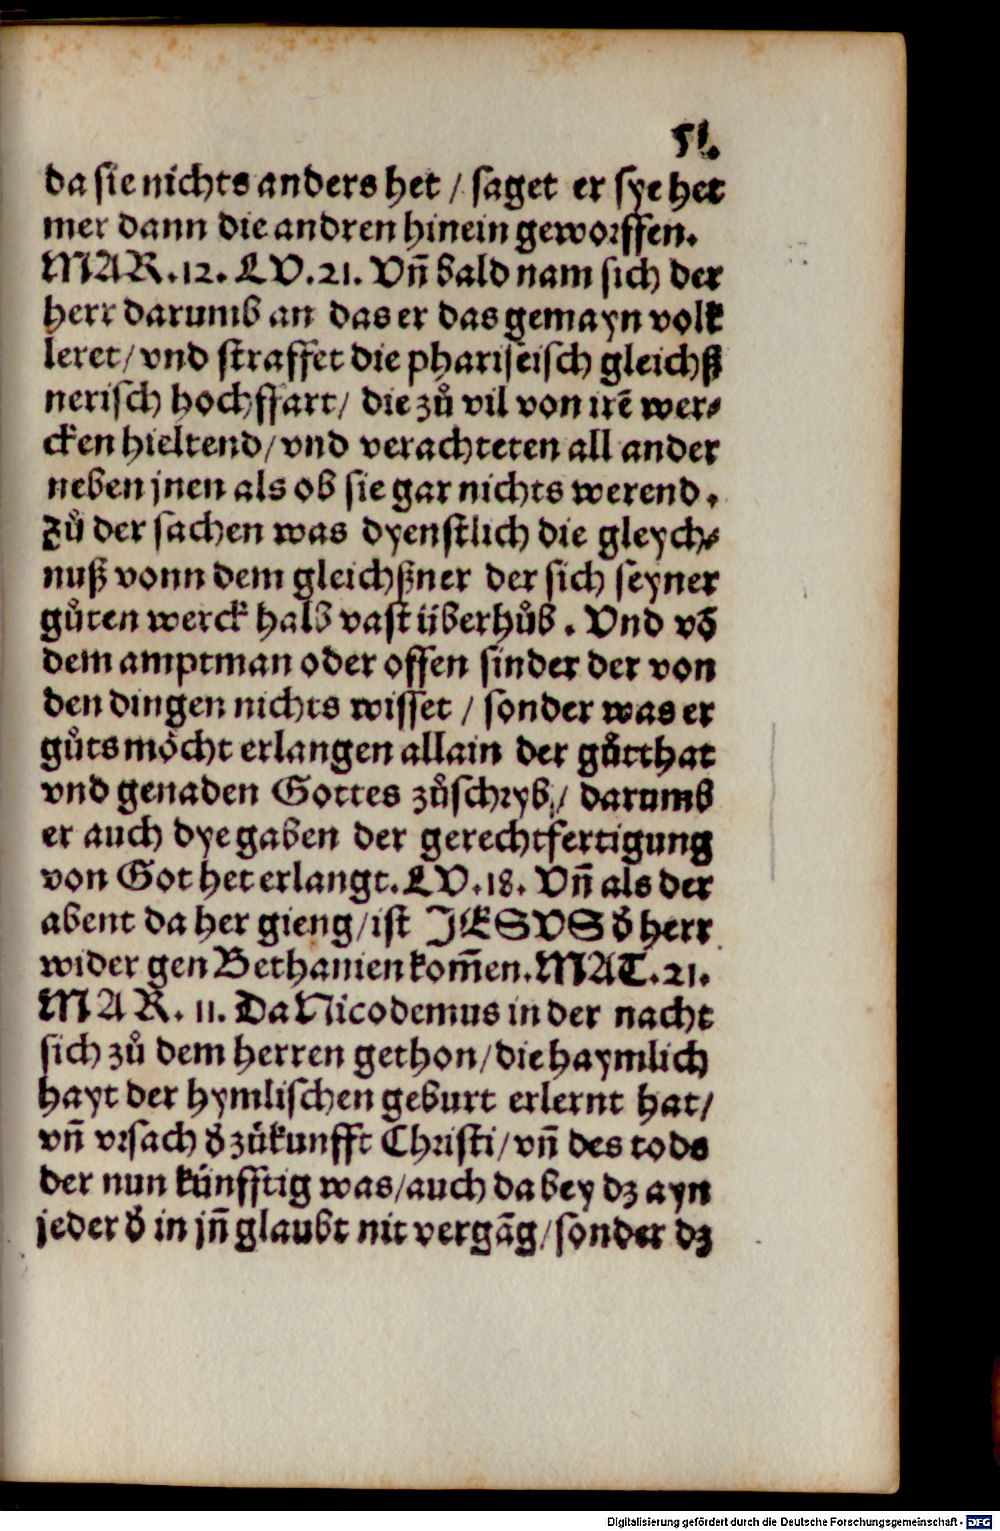 51.
da sie nichts anders het / saget er sye het
mer dann die andren hinein geworffen.
MAR.12. LV.21. Vñ bald nam sich der
herr darumb an das er das gemayn volk
leret/ vnd straffet die phariseisch gleichß
nerisch hochffart/ die zů vil von irẽ wer⸗
cken hieltend/ vnd verachteten all ander
neben jnen als ob sie gar nichts werend.
Zů der sachen was dyenstlich die gleych⸗
nuß vonn dem gleichßner der sich seyner
gůten werck halb vast überhůb. Vnd võ
dem amptman oder offen sinder der von
den dingen nichts wisset / sonder was er
gůts möcht erlangen allain der gůtthat
vnd genaden Gottes zůschryb / darumb
er auch dye gaben der gerechtfertigung
von Got het erlangt. LV.18. Vñ als der
abent da her gieng/ist JESVS d̕ herr
wider gen Bethanien kom̃en. MAT.21.
MAR. 11. Da Nicodemus in der nacht
sich zů dem herren gethon/die haymlich
hayt der hymlischen geburt erlernt hat/
vñ vrsach d̕ zůkunfft Christi/vñ des tods
der nun künfftig was/auch da bey dz ayn
jeder d̕ in jñ glaubt nit vergãg/sonder dz
Digitalisierung gefördert durch die Deutsche Forschungsgemeinschaft - DFG